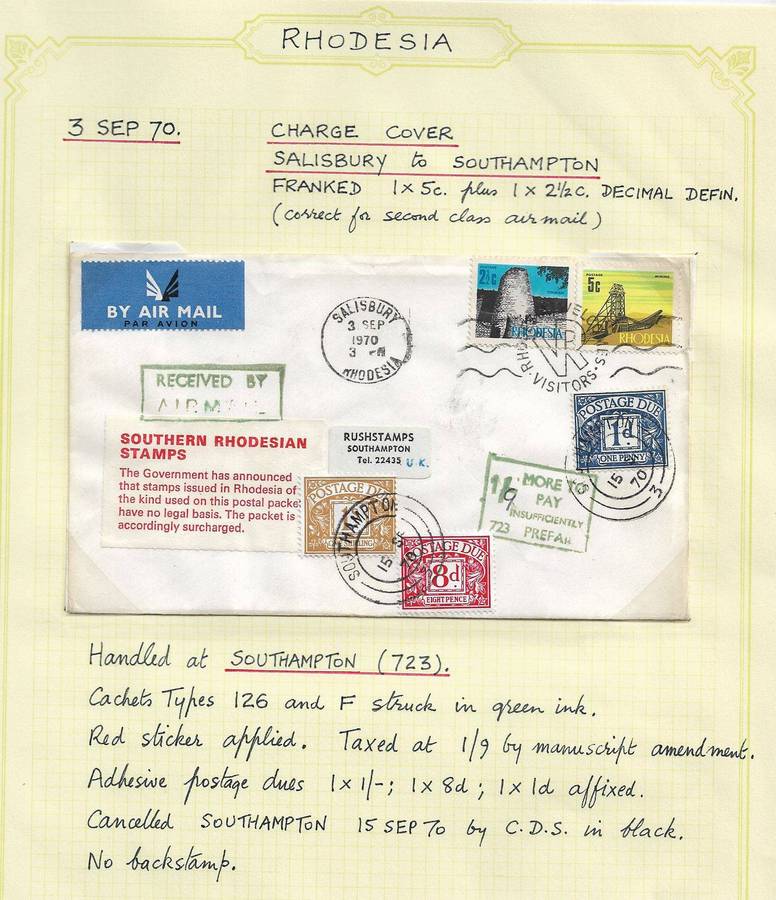 RHODESIA
3 SEP 70.
CHARGE COVER
SALISBURY to SOUTHAMPTON
FRANKED 1 x 5c. plus 1 x 2½c. DECIMAL DEFIN.
(correct for second class airmail)
BY AIR MAIL
PAR AVION
SALISBURY
3 SEP
1970
3 PM
RHODESIA
POSTAGE
2½c
RHODESIA
POSTAGE
5c
RHODESIA
VISITORS
RECEIVED BY
AIR MAIL
SOUTHERN RHODESIAN
STAMPS
The Government has announced
that stamps issued in Rhodesia of
the kind used on this postal packe
have no legal basis. The packet is
accordingly surcharged.
RUSHSTAMPS
SOUTHAMPTON
Tel. 22435 U.K.
POSTAGE DUE
1d
ONE PENNY
15
70
3
1/9
MORE TO
PAY
INSUFFICIENTLY
723 PREPAID
POSTAGE DUE
SOUTHAMPTON
15 SE
70
POSTAGE DUE
8d
EIGHT PENCE
Handled at SOUTHAMPTON (723).
Cachets Types 126 and F struck in green ink.
Red sticker applied. Taxed at 1/9 by manuscript amendment.
Adhesive postage dues 1 x 1/-; 1 x 8d; 1 x 1d affixed.
Cancelled SOUTHAMPTON 15 SEP 70 by C.D.S. in black.
No backstamp.